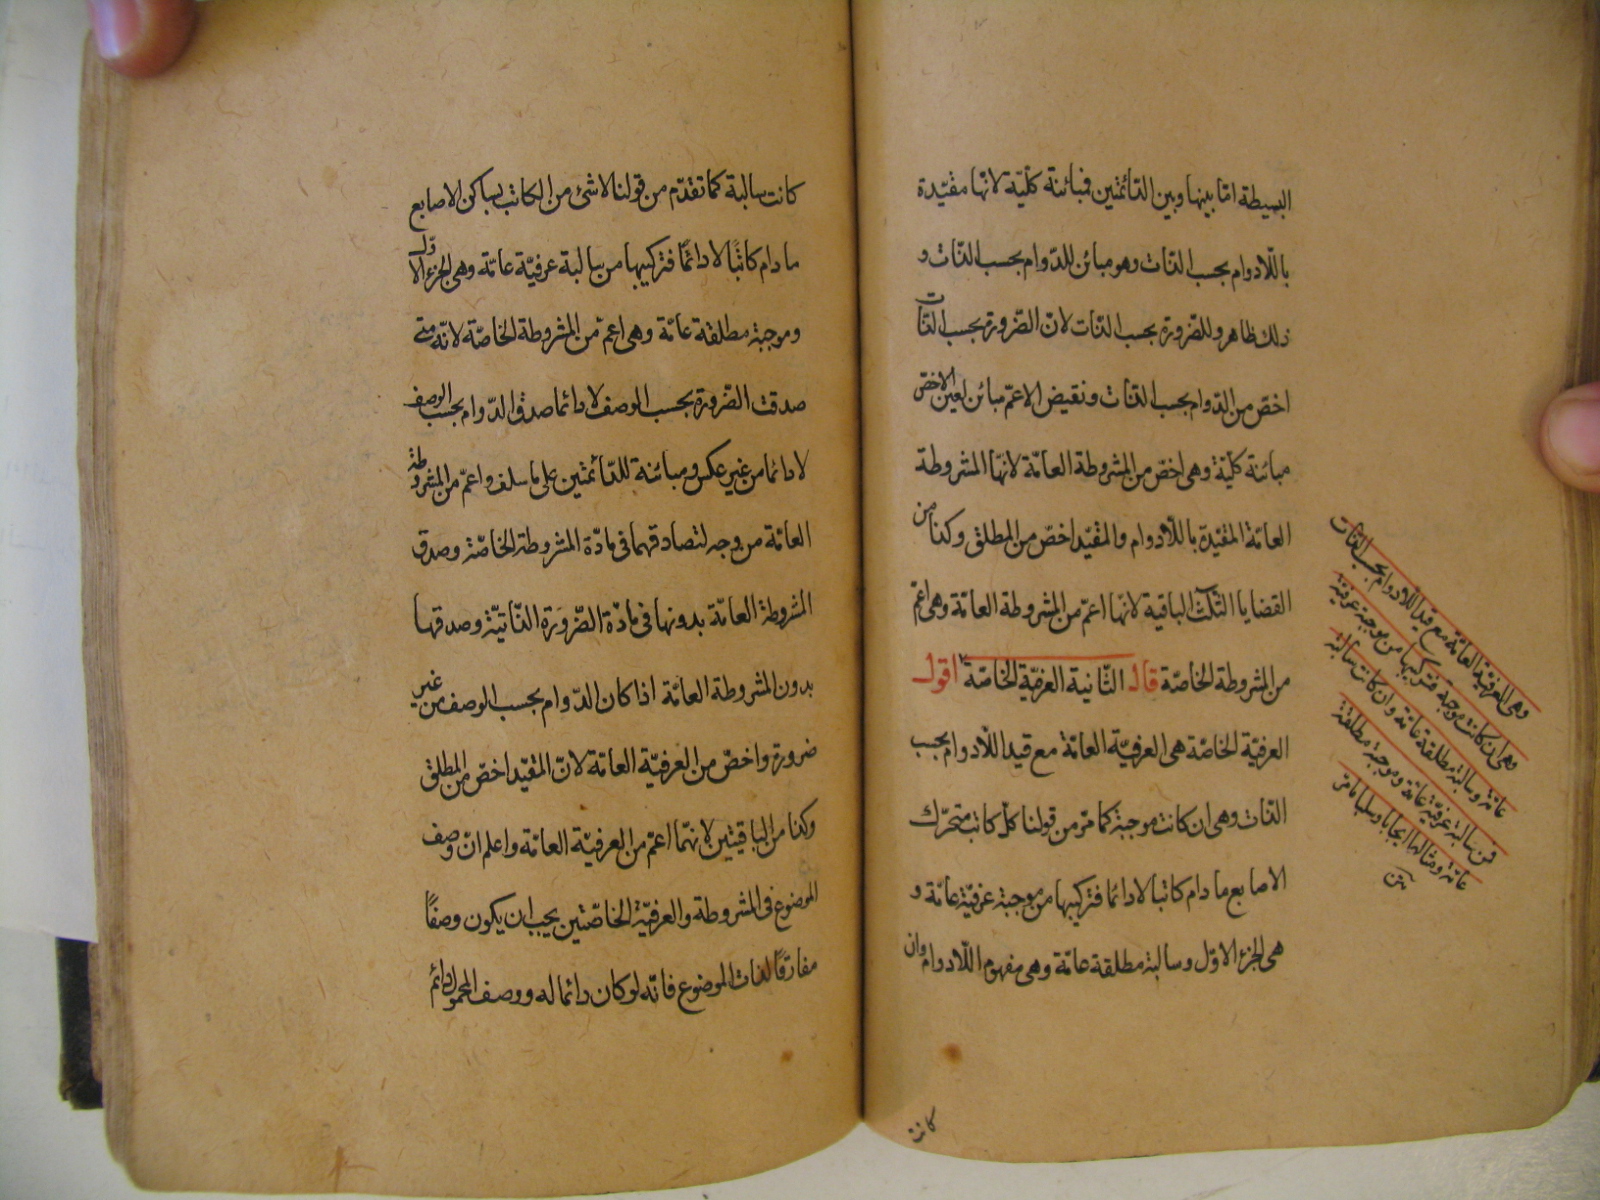 البسيطة امّا بينها وبين الدّائمتين فمبائنة كلّيّة لانّها مقيّدة
باللّادوام بحسب الذّات وهو مبائن للدّوام بحسب الذّات و
ذلك ظاهر وللضّرورة بحسب الذّات لانّ الضّرورة بحسب الذّات
اخصّ من الدّوام بحسب الذّات ونقيض الاعمّ مبائن لعين الاخصّ
مبائنة كلّيّة وهى اخصّ من المشروطة العامّة لانّها المشروطة
العامّة المقيّدة باللّادوام والمقيّد اخصّ من المطلق وكذا من
القضايا الثّلث الباقية لانّها اعمّ من المشروطة العامّة وهى اعمّ
من المشروطة الخاصّة قال الثّانية العرفيّة الخاصّة اقول
العرفيّة الخاصّة هى العرفيّة العامّة مع قيد اللّادوام بحسب
الذّات وهى ان كانت موجبة كما مرّ من قولنا كلّ كاتب متحرّك
الاصابع مادام كاتبا لا دائما فتركيبها من موجبة عرفيّة عامّة و
هى الجزء الاوّل وسالبة مطلقة عامّة وهى مفهوم اللّادوام وان
كانت
وهى العرفيّة العامّة مع قيد اللّادوام بحسب الذّات
وهى ان كانت موجبة فتركيبها من موجبة عرفيّة
عامّة وسالبة مطلقة عامّة وان كانت سالبة
فمن سالبة عرفيّة عامّة وموجبة مطلقة
عامّة ومثالها ايجابا وسلبا ما مرّ
متن
كانت سالبة كما تقدّم من قولنا لا شئ من الكاتب بساكن الاصابع
مادام كاتبًا لا دائمًا فتركيبها من سالبة عرفيّة عامّة وهى الجزء الاوّل
وموجبة مطلقة عامّة وهى اعمّ من المشروطة الخاصّة لانّه متى
صدقت الضّرورة بحسب الوصف لا دائما صدق الدّوام بحسب الوصف
لا دائما من غير عكس ومبائنة للدّائمتين على ما سلف واعمّ من المشروطة
العامّة من وجه لتصادقهما فى مادّة المشروطة الخاصّة وصدق
المشروطة العامّة بدونها فى مادّة الضّرورة الذّاتيّة وصدقها
بدون المشروطة العامّة اذا كان الدّوام بحسب الوصف من غير
ضرورة واخصّ من العرفيّة العامّة لانّ المقيّد اخصّ من المطلق
وكذا من الباقيتين لانهّما اعمّ من العرفيّة العامّة واعلم انّ وصف
الموضوع فى المشروطة والعرفيّة الخاصّتين يجب ان يكون وصفًا
مفارقًا لذات الموضوع فانّه لو كان دائما له ووصف المحمول دائم